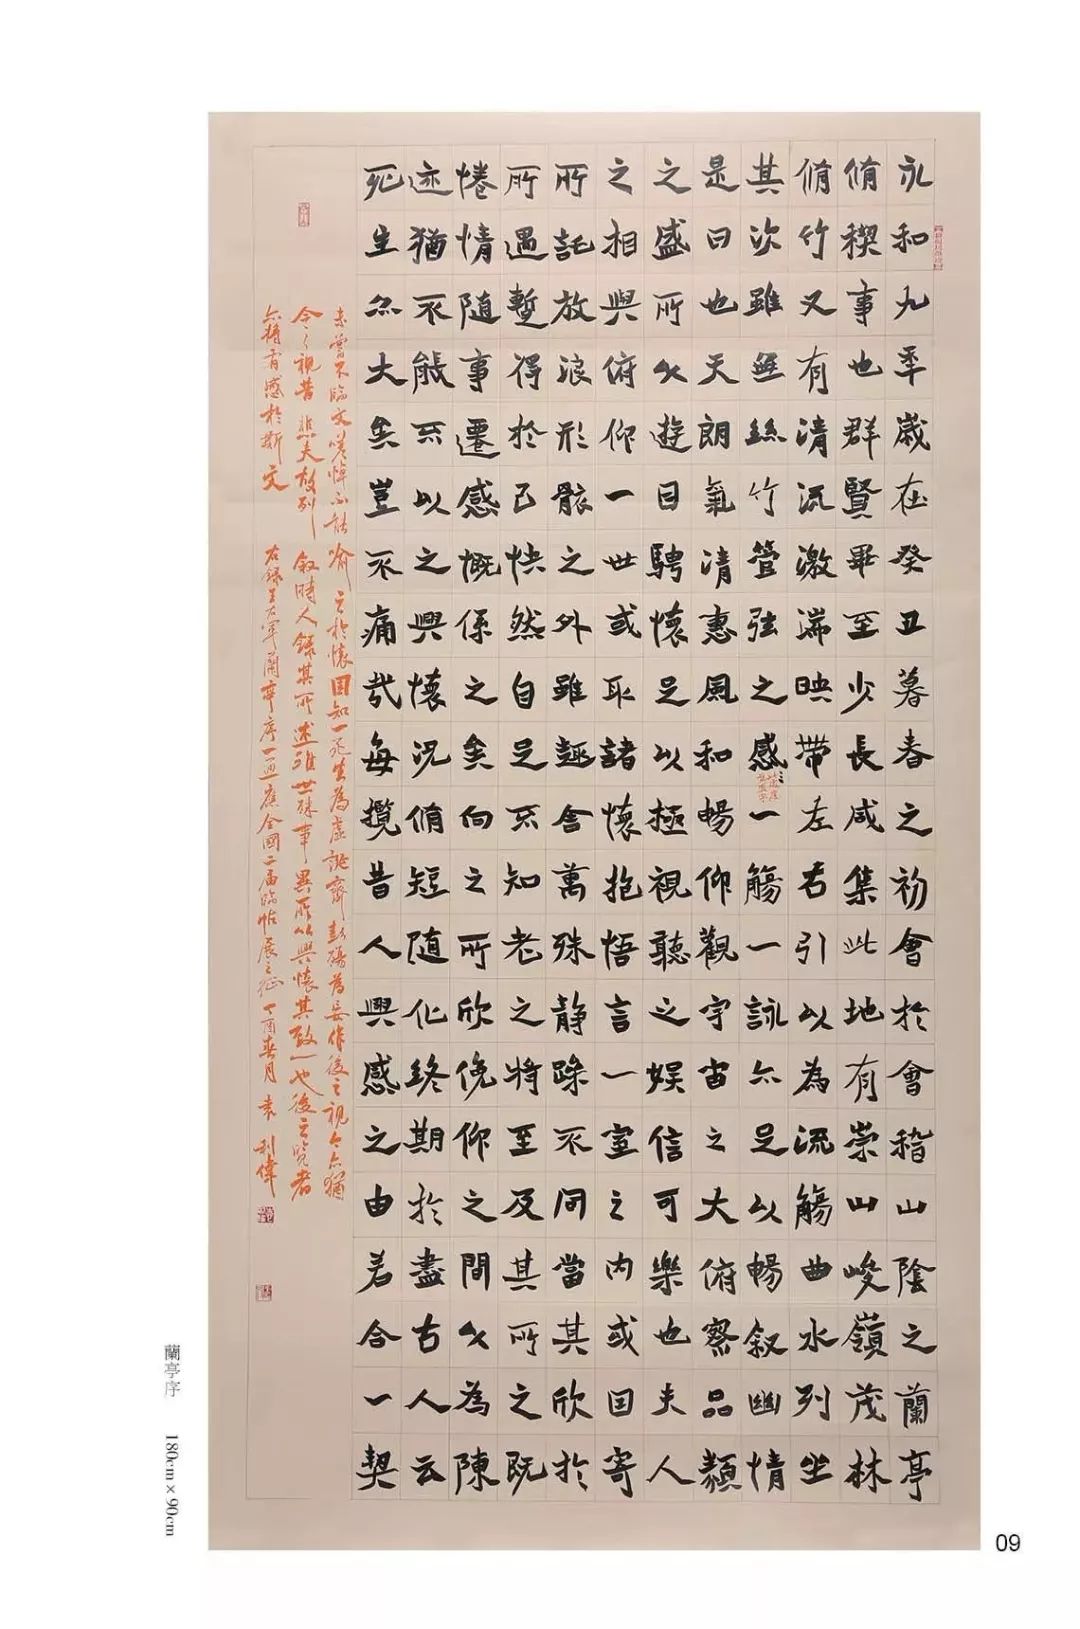 永和九年歲在癸丑暮春之初會於會稽山陰之蘭亭
脩稧事也群賢畢至少長咸集此地有崇山峻嶺茂林
脩竹又有清流激湍映帶左右引以為流觴曲水列坐
其次雖無絲竹管弦之感一觴一詠亦足以暢叙幽情
是日也天朗氣清惠風和暢仰觀宇宙之大俯察品類
之盛所以遊目騁懷足以極視聽之娛信可樂也夫人
之相與俯仰一世或取諸懷抱悟言一室之內或因寄
所託放浪形骸之外雖趣舍萬殊静躁不同當其欣於
所遇蹔得於己快然自足不知老之將至及其所之既
惓情隨事遷感慨係之矣向之所欣俛仰之間以為陳
迹猶不能不以之興懷況脩短隨化終期於盡古人云
死生亦大矣豈不痛哉每攬昔人興感之由若合一契
未嘗不臨文嗟悼不能喻之於懷固知一死生為虛誕齊彭殤為妄作後之視今亦猶
今之視昔悲夫故列叙時人録其所述雖世殊事異所以興懷其致一也後之覽者
亦將有感於斯文 右録王右軍蘭亭序一通應全國二届臨帖展之征 丁酉春月 袁利偉
蘭亭序 180cm×90cm
09